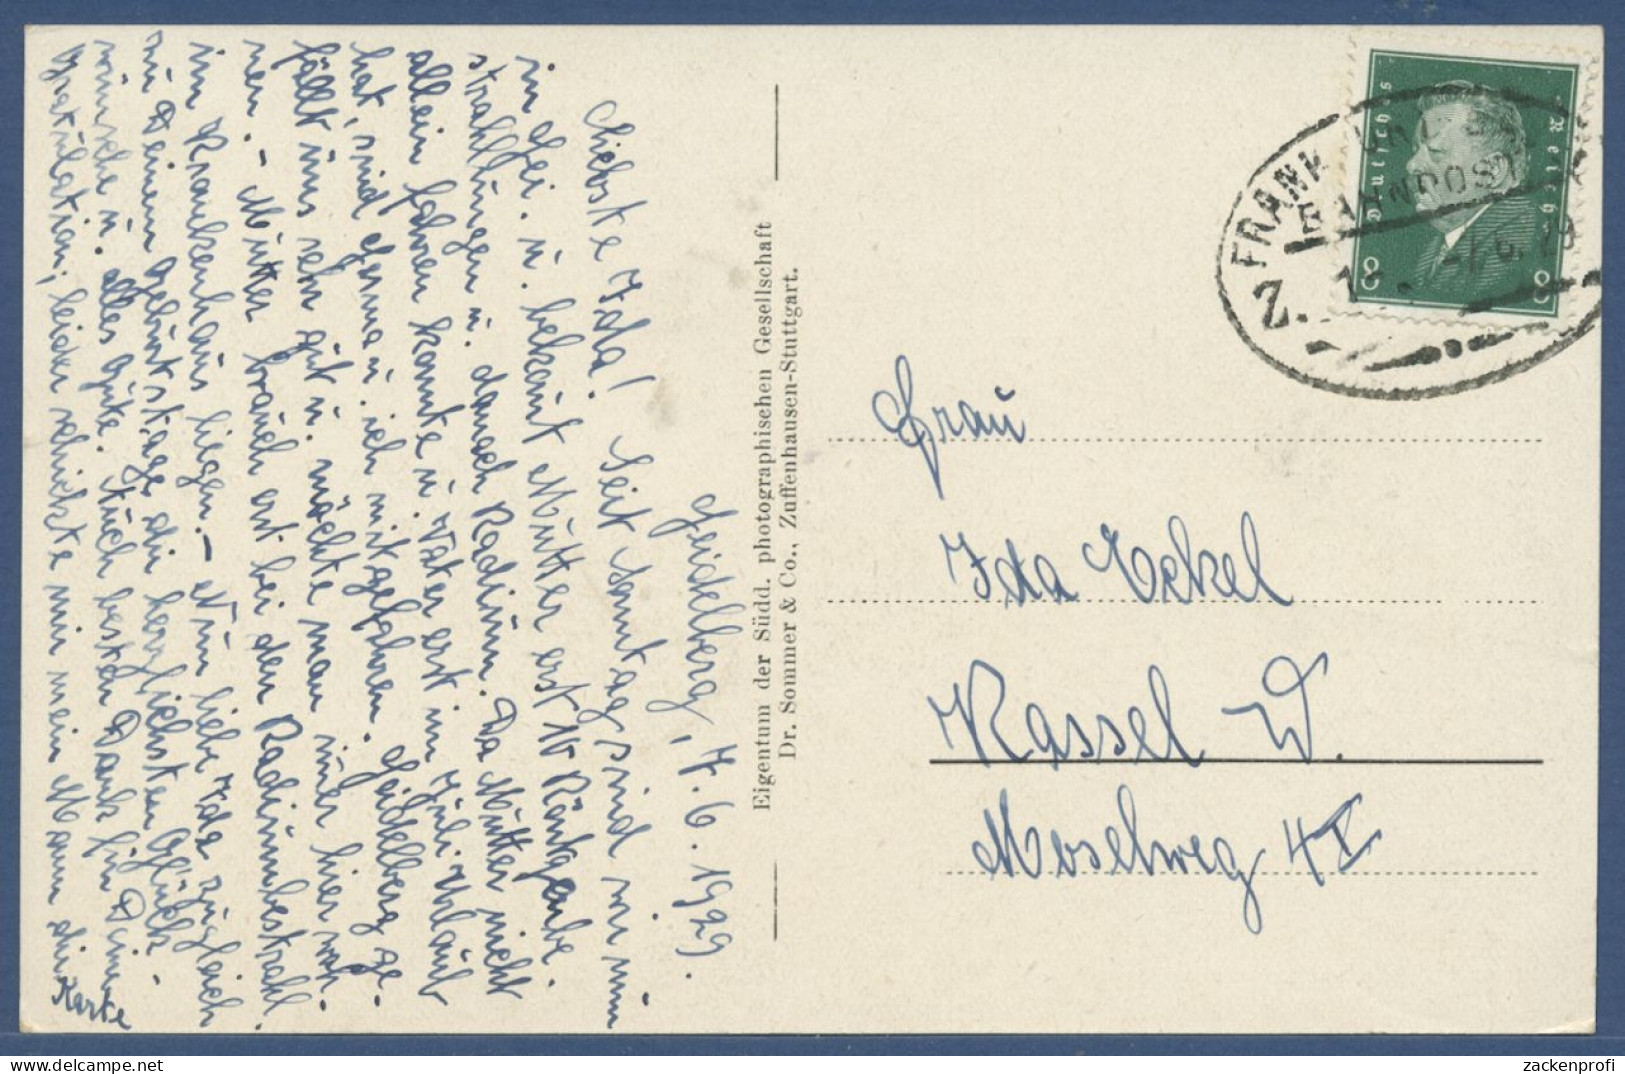 Heidelberg, 7. 6. 1929.
Liebste Ida! Seit Sonntag sind wir nun
in Hei. u. bekomt Mutter erst 10 Röntgenbe.
strahlungen u. danach Radium. Da Mutter nicht
allein fahren konnte u. Vater erst im Juli Urlaub
hat, sind Erna u. ich mitgefahren. Heidelberg ge.
fällt uns sehr gut u. möchte man imer hier woh.
nen. - Mutter brauch erst bei den Radiumbestrahl.
im Krankenhaus liegen. - Nun liebe Ida zugleich
zu Deinem Geburtstage die herzlichsten Glück.
wünsche u. alles Gute. Auch besten Dank für Deine
Gratulation, leider schickte mir mein Mann die
Karte
Eigentum der Südd. photographischen Gesellschaft
Dr. Sommer & Co., Zuffenhausen-Stuttgart.
Deutsches Reich
8 8
FRANK
BAHNPOST
Z.
Frau
Ida Eckel
Kassel W.
Moselweg 4 I
zackenprofi